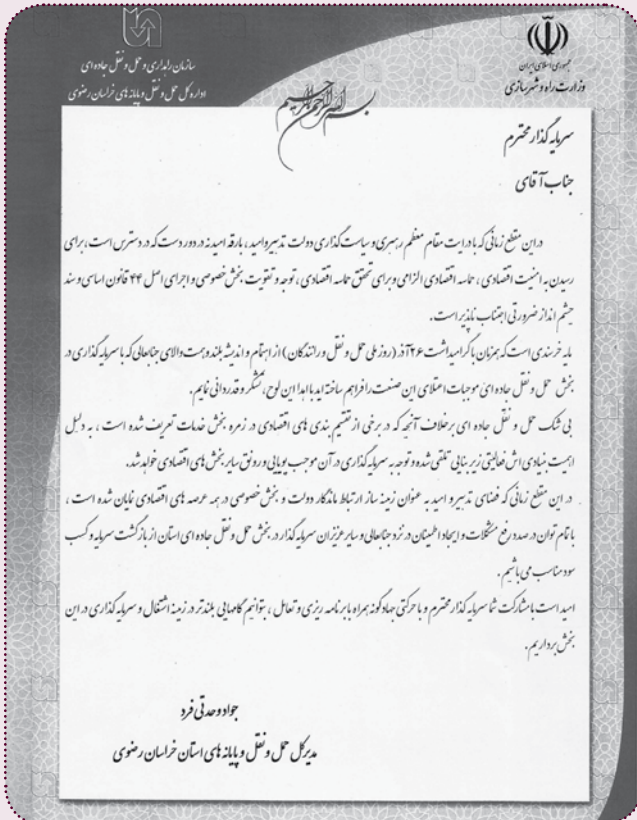 جمهوری اسلامی ایران
وزارت راه و شهرسازی
سازمان راهداری و حمل و نقل جاده‌ای
اداره کل حمل و نقل و پایانه‌های خراسان رضوی
بسم الله الرحمن الرحیم
سرمایه گذار محترم
جناب آقای
در این مقطع زمانی که با درایت مقام معظم رهبری و سیاست گذاری دولت تدبیر و امید، بارقه امید نه در دور دست که در دسترس است، برای
رسیدن به امنیت اقتصادی، حماسه اقتصادی الزامی و برای تحقق حماسه اقتصادی، توجه و تقویت بخش خصوصی و اجرای اصل ۴۴ قانون اساسی و سند
چشم انداز ضرورتی اجتناب ناپذیر است.
مایه خرسندی است که همزمان با گرامیداشت ۲۶ آذر (روز ملی حمل و نقل و رانندگان) از اهتمام و اندیشه بلند و همت والای جنابعالی که با سرمایه گذاری در
بخش حمل و نقل جاده ای موجبات اعتلای این صنعت را فراهم ساخته اید با اهدا این لوح، تشکر و قدردانی نمایم.
بی شک حمل و نقل جاده ای برخلاف آنچه که در برخی از تقسیم بندی های اقتصادی در زمره بخش خدمات تعریف شده است، به دلیل
اهمیت بنیادی اش فعالیتی زیر بنایی تلقی شده و توجه به سرمایه گذاری در آن موجب پویایی و رونق سایر بخش های اقتصادی خواهد شد.
در این مقطع زمانی که فضای تدبیر و امید به عنوان زمینه ساز ارتباط ماندگار دولت و بخش خصوصی در همه عرصه های اقتصادی نمایان شده است،
با تمام توان در صدد رفع مشکلات و ایجاد اطمینان در نزد جنابعالی و سایر عزیزان سرمایه گذار در بخش حمل و نقل جاده ای استان از بازگشت سرمایه و کسب
سود مناسب می باشیم.
امید است با مشارکت شما سرمایه گذار محترم و با حرکتی جهادگونه همراه با برنامه ریزی و تعامل، بتوانیم گامهایی بلندتر در زمینه اشتغال و سرمایه گذاری در این
بخش برداریم.
جواد وحدتی فرد
مدیر کل حمل و نقل و پایانه های استان خراسان رضوی